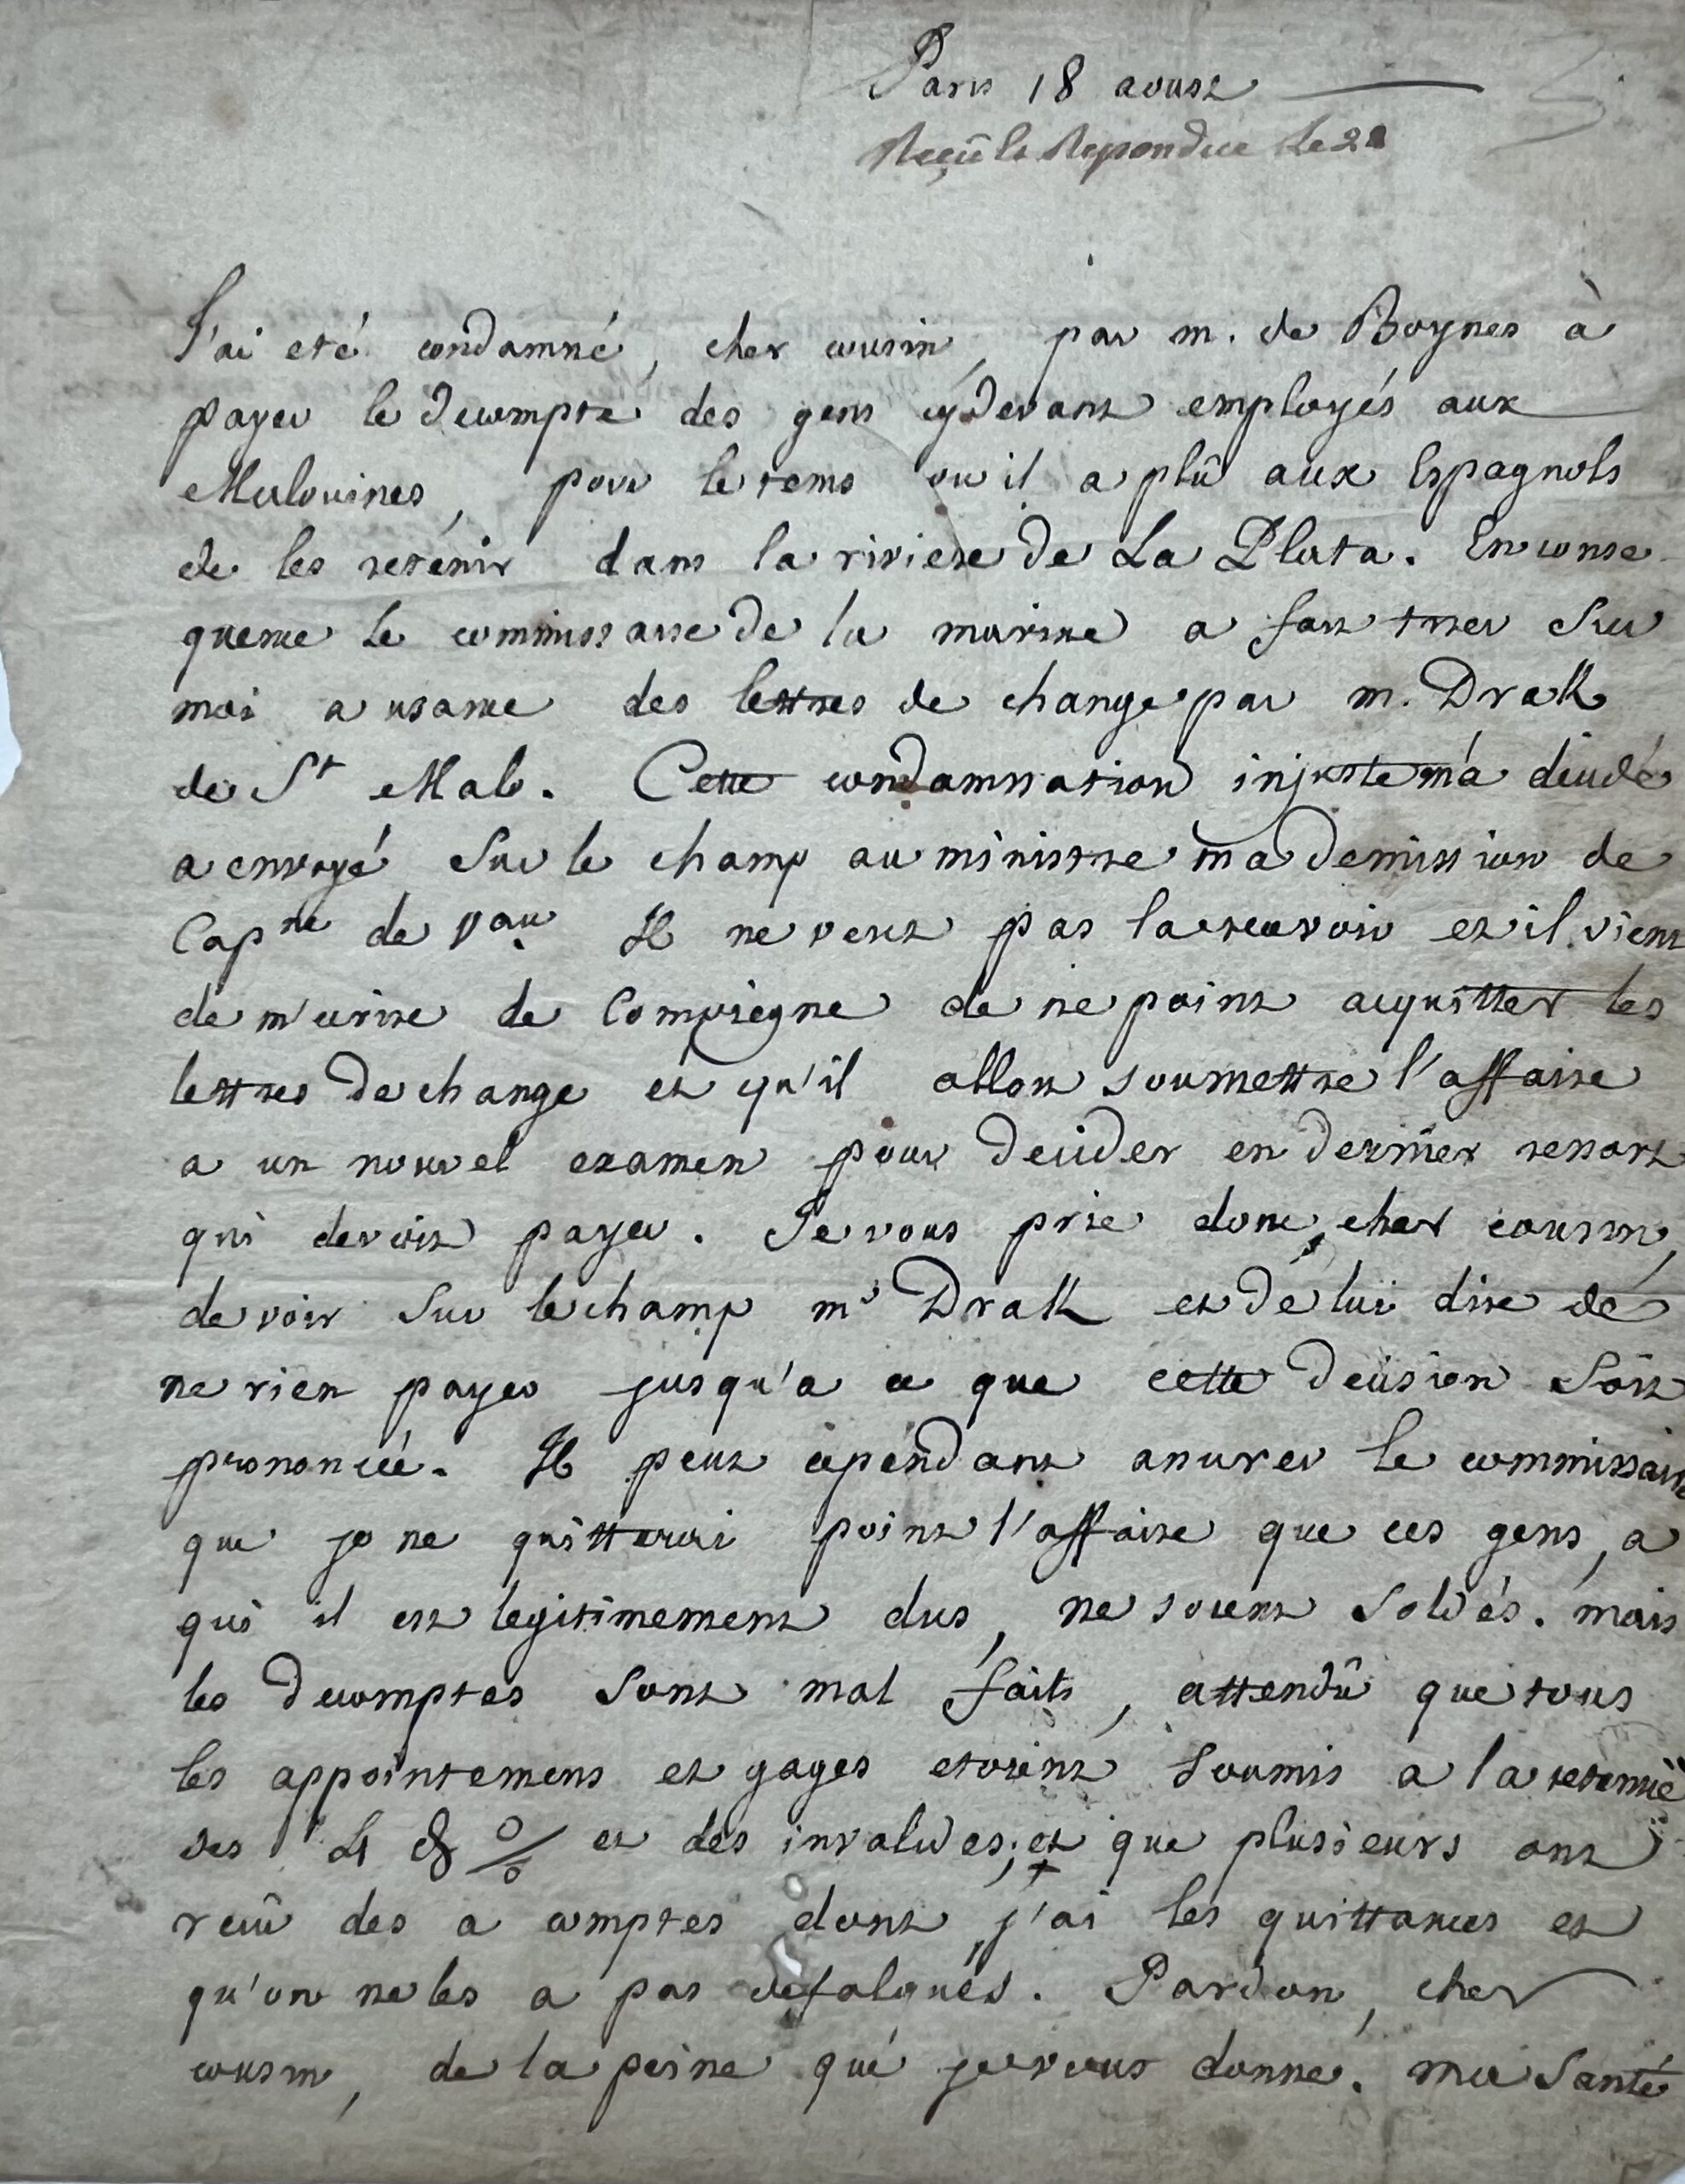 Paris 18 aoust
Reçü le Repondue Le 21
J'ai eté condamné, cher cousin, par m. de Boynes à
payer le decompte des gens cydevant employés aux
Malouines, pour le tems ou il a plû aux Espagnols
de les retenir dans la riviere de La Plata. En conse
quence le commissaire de la marine a fait tirer sur
moi a usance des lettres de change par m. Drak
de St Malo. Cette condamnation injuste m'a décidé
a envoyé sur le champ au ministre ma demission de
Capne de vau Il ne veut pas la recevoir et il vient
de m'ecrire de Compiegne de ne point acquitter les
lettres de change et qu'il alloit soumettre l'affaire
a un nouvel examen pour decider en dernier ressort
qui devoit payer. Je vous prie donc, cher cousin,
de voir sur le champ mr Drak et de lui dire de
ne rien payer jusqu'a ce que cette decision soit
prononcée. Il peut cependant assurer le commissaire
que je ne quitterai point l'affaire que ces gens, a
qui il est legitimement dus, ne soient soldés. mais
les decomptes sont mal faits, attendû que tous
les appointemens et gages etoient soumis a la retenuë
des 4 d % et des invalides; et que plusieurs ont
recû des a comptes dont j'ai les quittances et
qu'on ne les a pas defalqués. Pardon, cher
cousin, de la peine que je vous donne. ma santé